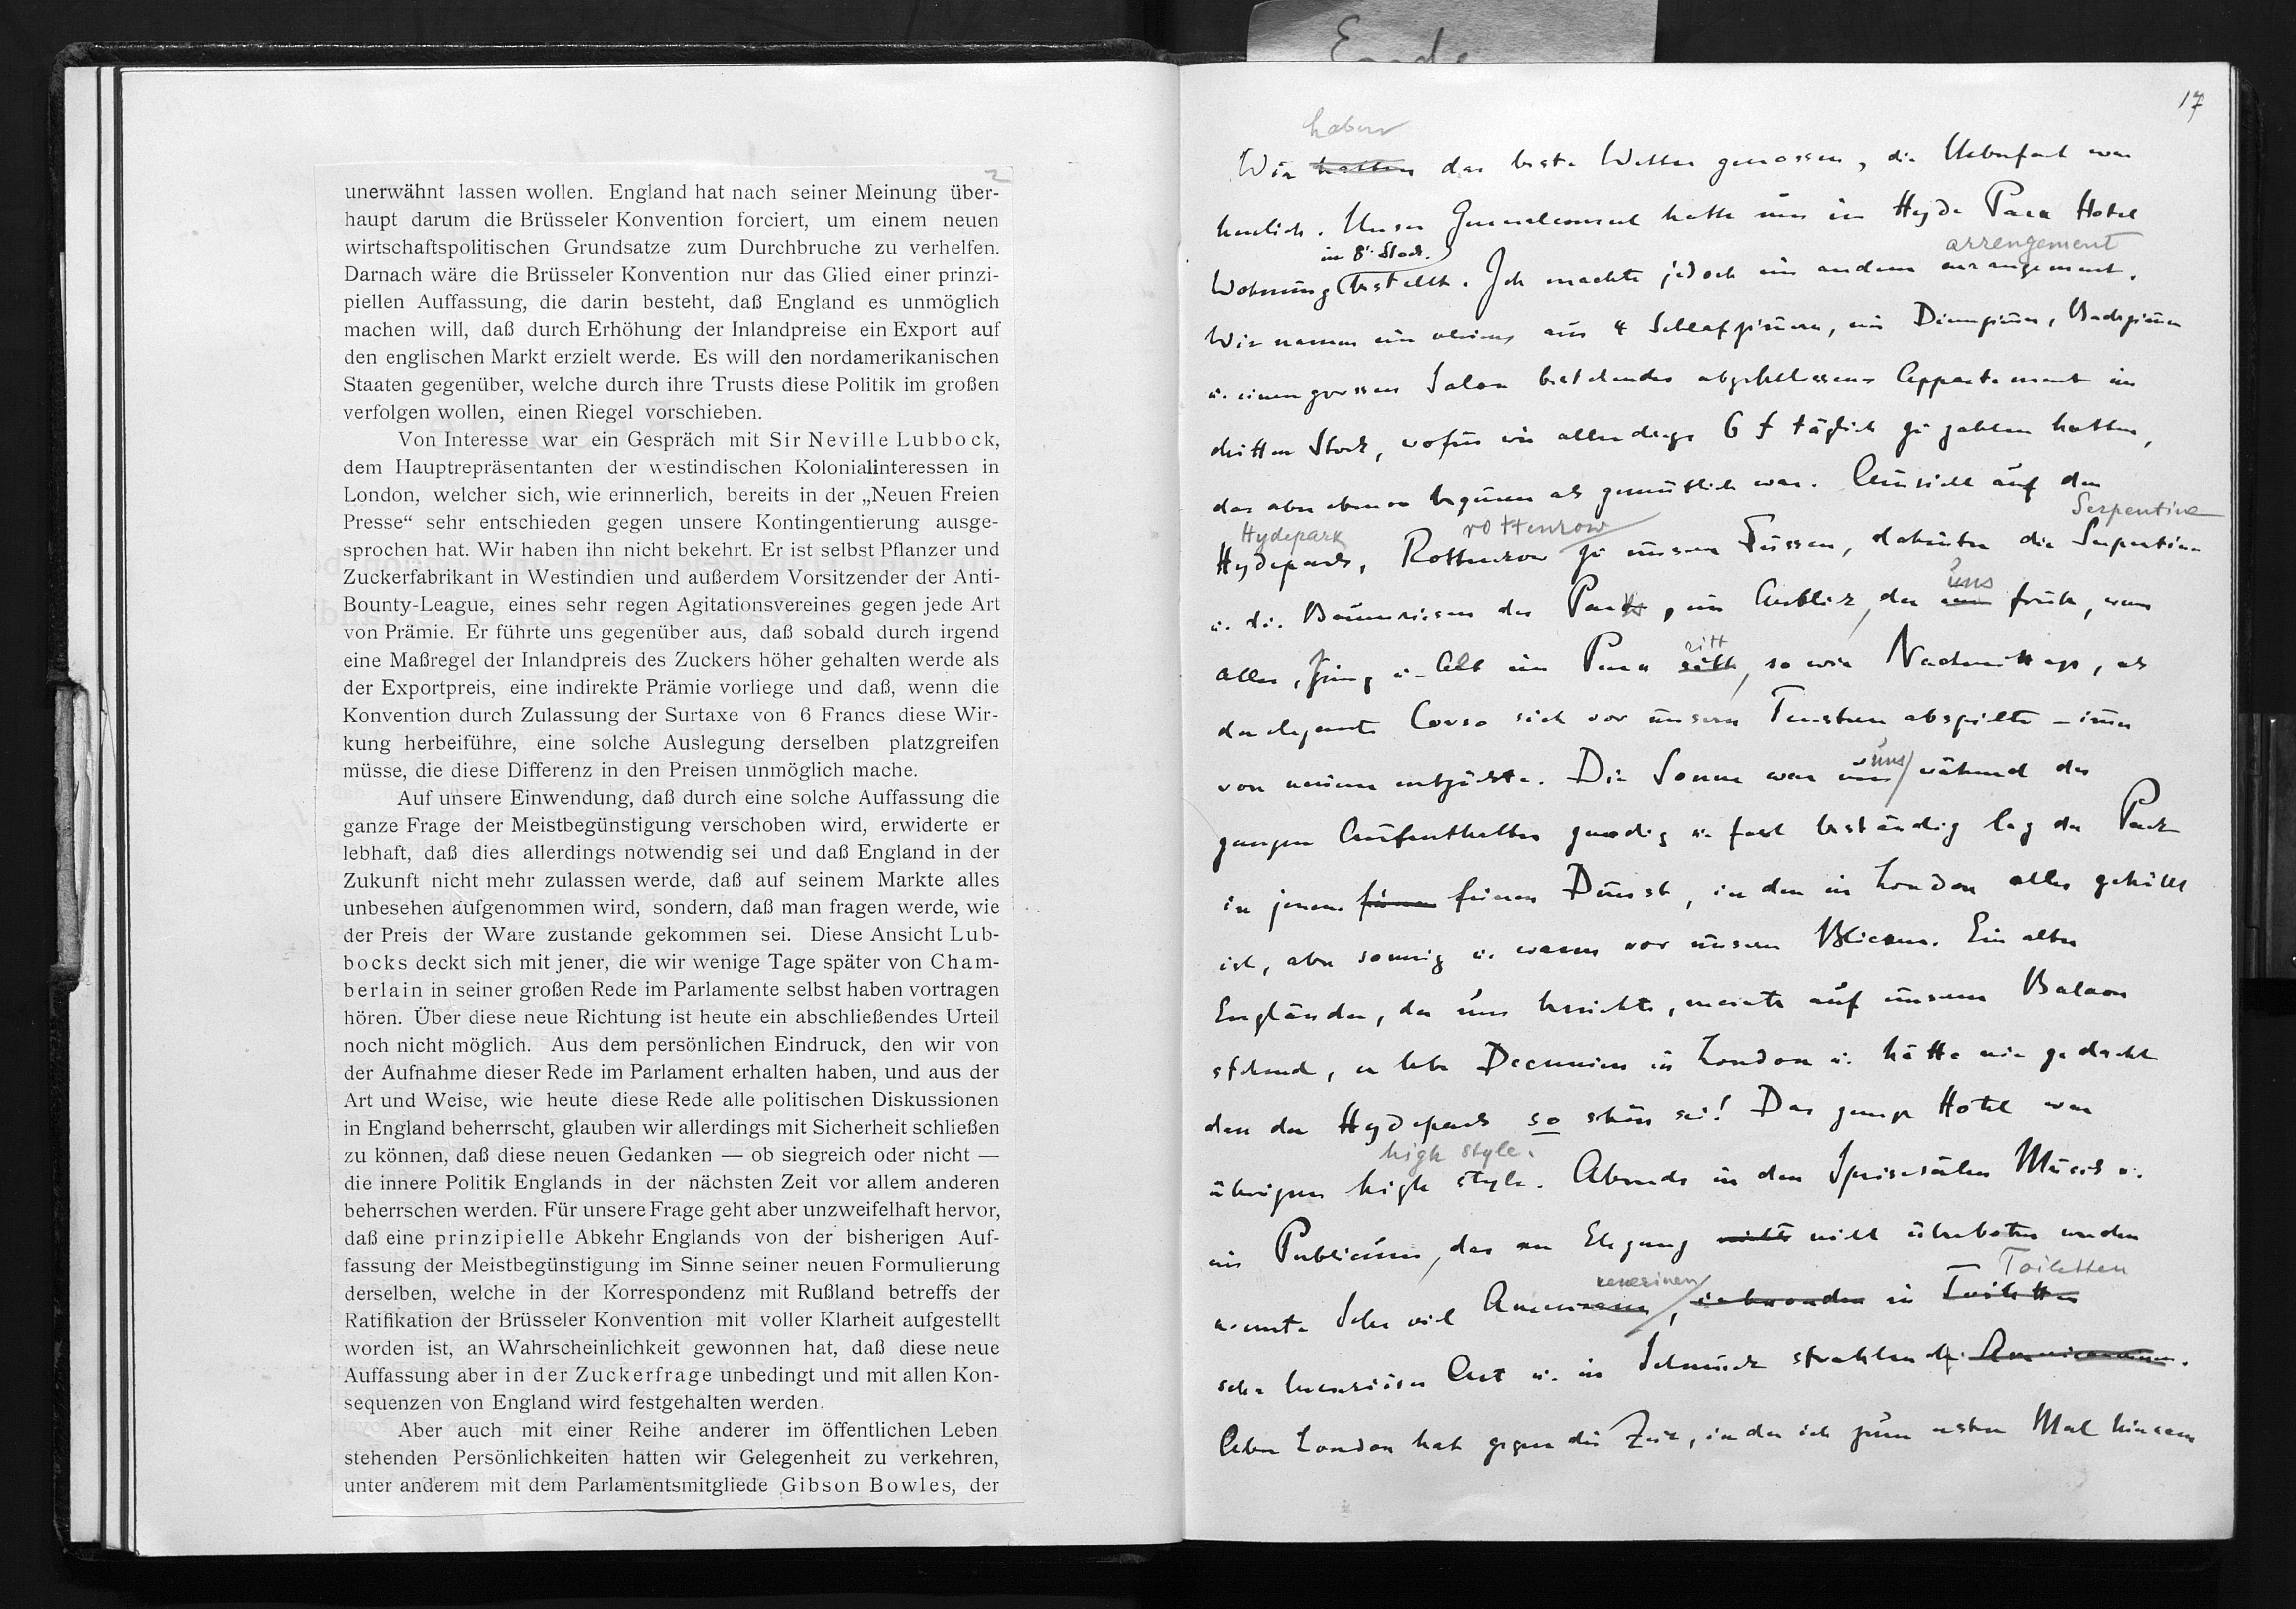 2
unerwähnt lassen wollen. England hat nach seiner Meinung über-
haupt darum die Brüsseler Konvention forciert, um einem neuen
wirtschaftspolitischen Grundsatze zum Durchbruche zu verhelfen.
Darnach wäre die Brüsseler Konvention nur das Glied einer prinzi-
piellen Auffassung, die darin besteht, daß England es unmöglich
machen will, daß durch Erhöhung der Inlandpreise ein Export auf
den englischen Markt erzielt werde. Es will den nordamerikanischen
Staaten gegenüber, welche durch ihre Trusts diese Politik im großen
verfolgen wollen, einen Riegel vorschieben.
Von Interesse war ein Gespräch mit Sir Neville Lubbock,
dem Hauptrepräsentanten der westindischen Kolonialinteressen in
London, welcher sich, wie erinnerlich, bereits in der „Neuen Freien
Presse“ sehr entschieden gegen unsere Kontingentierung ausge-
sprochen hat. Wir haben ihn nicht bekehrt. Er ist selbst Pflanzer und
Zuckerfabrikant in Westindien und außerdem Vorsitzender der Anti-
Bounty-League, eines sehr regen Agitationsvereines gegen jede Art
von Prämie. Er führte uns gegenüber aus, daß sobald durch irgend
eine Maßregel der Inlandpreis des Zuckers höher gehalten werde als
der Exportpreis, eine indirekte Prämie vorliege und daß, wenn die
Konvention durch Zulassung der Surtaxe von 6 Francs diese Wir-
kung herbeiführe, eine solche Auslegung derselben platzgreifen
müsse, die diese Differenz in den Preisen unmöglich mache.
Auf unsere Einwendung, daß durch eine solche Auffassung die
ganze Frage der Meistbegünstigung verschoben wird, erwiderte er
lebhaft, daß dies allerdings notwendig sei und daß England in der
Zukunft nicht mehr zulassen werde, daß auf seinem Markte alles
unbesehen aufgenommen wird, sondern, daß man fragen werde, wie
der Preis der Ware zustande gekommen sei. Diese Ansicht Lub-
bocks deckt sich mit jener, die wir wenige Tage später von Cham-
berlain in seiner großen Rede im Parlamente selbst haben vortragen
hören. Über diese neue Richtung ist heute ein abschließendes Urteil
noch nicht möglich. Aus dem persönlichen Eindruck, den wir von
der Aufnahme dieser Rede im Parlament erhalten haben, und aus der
Art und Weise, wie heute diese Rede alle politischen Diskussionen
in England beherrscht, glauben wir allerdings mit Sicherheit schließen
zu können, daß diese neuen Gedanken — ob siegreich oder nicht —
die innere Politik Englands in der nächsten Zeit vor allem anderen
beherrschen werden. Für unsere Frage geht aber unzweifelhaft hervor,
daß eine prinzipielle Abkehr Englands von der bisherigen Auf-
fassung der Meistbegünstigung im Sinne seiner neuen Formulierung
derselben, welche in der Korrespondenz mit Rußland betreffs der
Ratifikation der Brüsseler Konvention mit voller Klarheit aufgestellt
worden ist, an Wahrscheinlichkeit gewonnen hat, daß diese neue
Auffassung aber in der Zuckerfrage unbedingt und mit allen Kon-
sequenzen von England wird festgehalten werden.
Aber auch mit einer Reihe anderer im öffentlichen Leben
stehenden Persönlichkeiten hatten wir Gelegenheit zu verkehren,
unter anderem mit dem Parlamentsmitgliede Gibson Bowles, der
Ende
17
haben
Wir hatten das beste Wetter genossen, die Ueberfart war
herrlich. Unser Generalconsul hatte uns im Hyde Parc Hotel
im 8. Stock arrengement
Wohnung bestellt. Ich machte jedoch ein anderes arrangement.
Wir namen ein aus 4 Schlafzimern, ein Dienerzimer, Badezimer
u. einem grossen Salon bestehendes abgeschlossenes Appartement im
dritten Stock, wofür wir allerdings 6 £ täglich zu zahlen hatten,
das aber ebenso bequem als gemütlich war. Aussicht auf den
Hydepark rottenrow Serpentine
Hydepark, Rottenrow zu unsern Füssen, dahinter die Serpentine
uns
u. die Baumriesen des Parks, ein Anblick, der uns früh, wenn
ritt
alles, Jung u. Alt im Parc ritt, so wie Nachmittags, als
der elegante Corso sich vor unsern Fenstern abspielte – imer
uns
von neuem entzückte. Die Sonne war uns während des
ganzen Aufenthaltes gnädig u. fast beständig lag der Park
in jenem feinen feinen Dunst, in den in London alles gehüllt
ist, aber sonnig u. warm vor unsern Blicken. Ein alter
Engländer, der uns besuchte, meinte auf unserm Balcon
stehend, er lebe Decennien in London u. hätte nie gedacht
dass der Hydepark so schön sei! Das ganze Hôtel war
high style.
übrigens high style. Abends in den Speisesälen Musik u.
ein Publicum, das an Eleganz nicht nicht überboten werden
Toiletten
konnte Sehr viel in Toiletten
sehr luxuriöser Art u. in Schmuck strahlende Americanerinen.
Aber London hat gegen die Zeit, in der ich zum ersten Mal hinkam